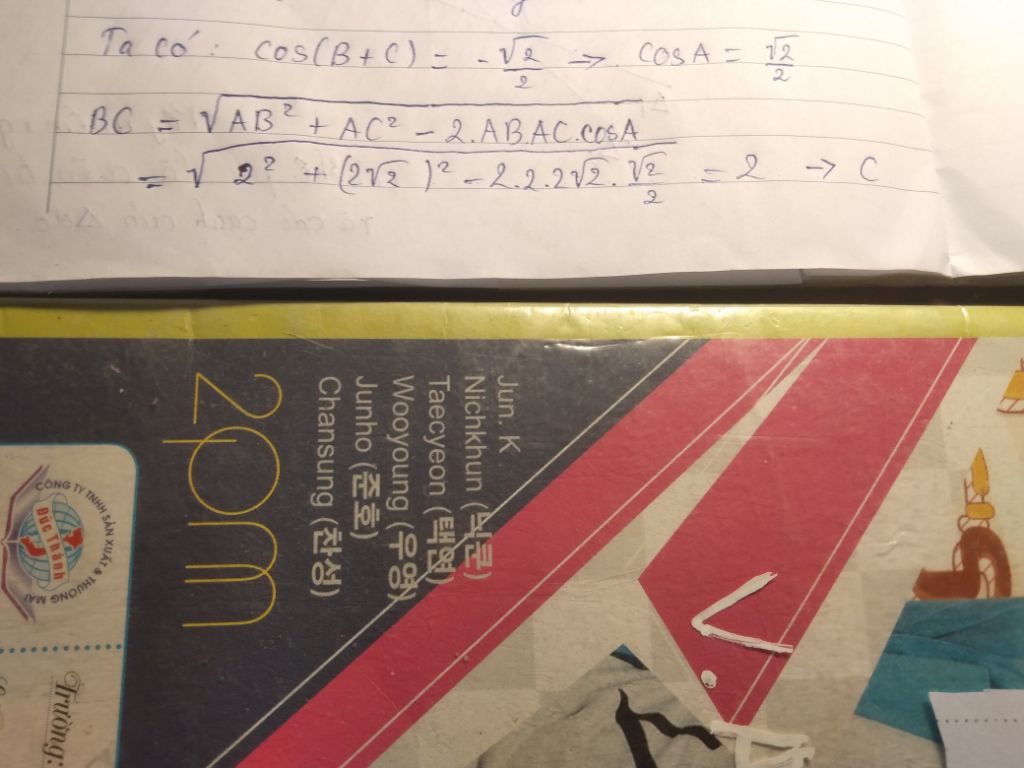 Ta có: cos(B+C) = -√2/2 → cosA = √2/2
BC = √AB² + AC² - 2.AB.AC.cosA
= √2² + (2√2)² - 2.2.2√2.√2/2 = 2 → C
Jun. K
Nichkhun (닉쿤)
Taecyeon (택연)
Wooyoung (우영)
Junho (준호)
Chansung (찬성)
2pm
CÔNG TY TNHH SẢN XUẤT & THƯƠNG MẠI
Đức Thành
Trường: